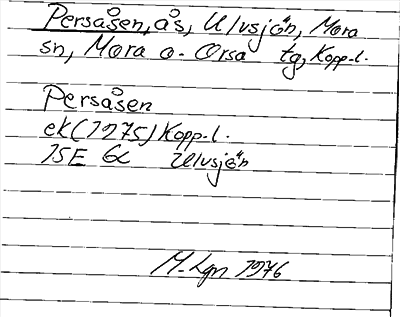 Persåsen, ås, Ulvsjön, Mora
sn, Mora o. Orsa tg, Kopp-l.
Persåsen
ek (1975) Kopp-l.
15E 6c Ulvsjön
M-Lgn 1976